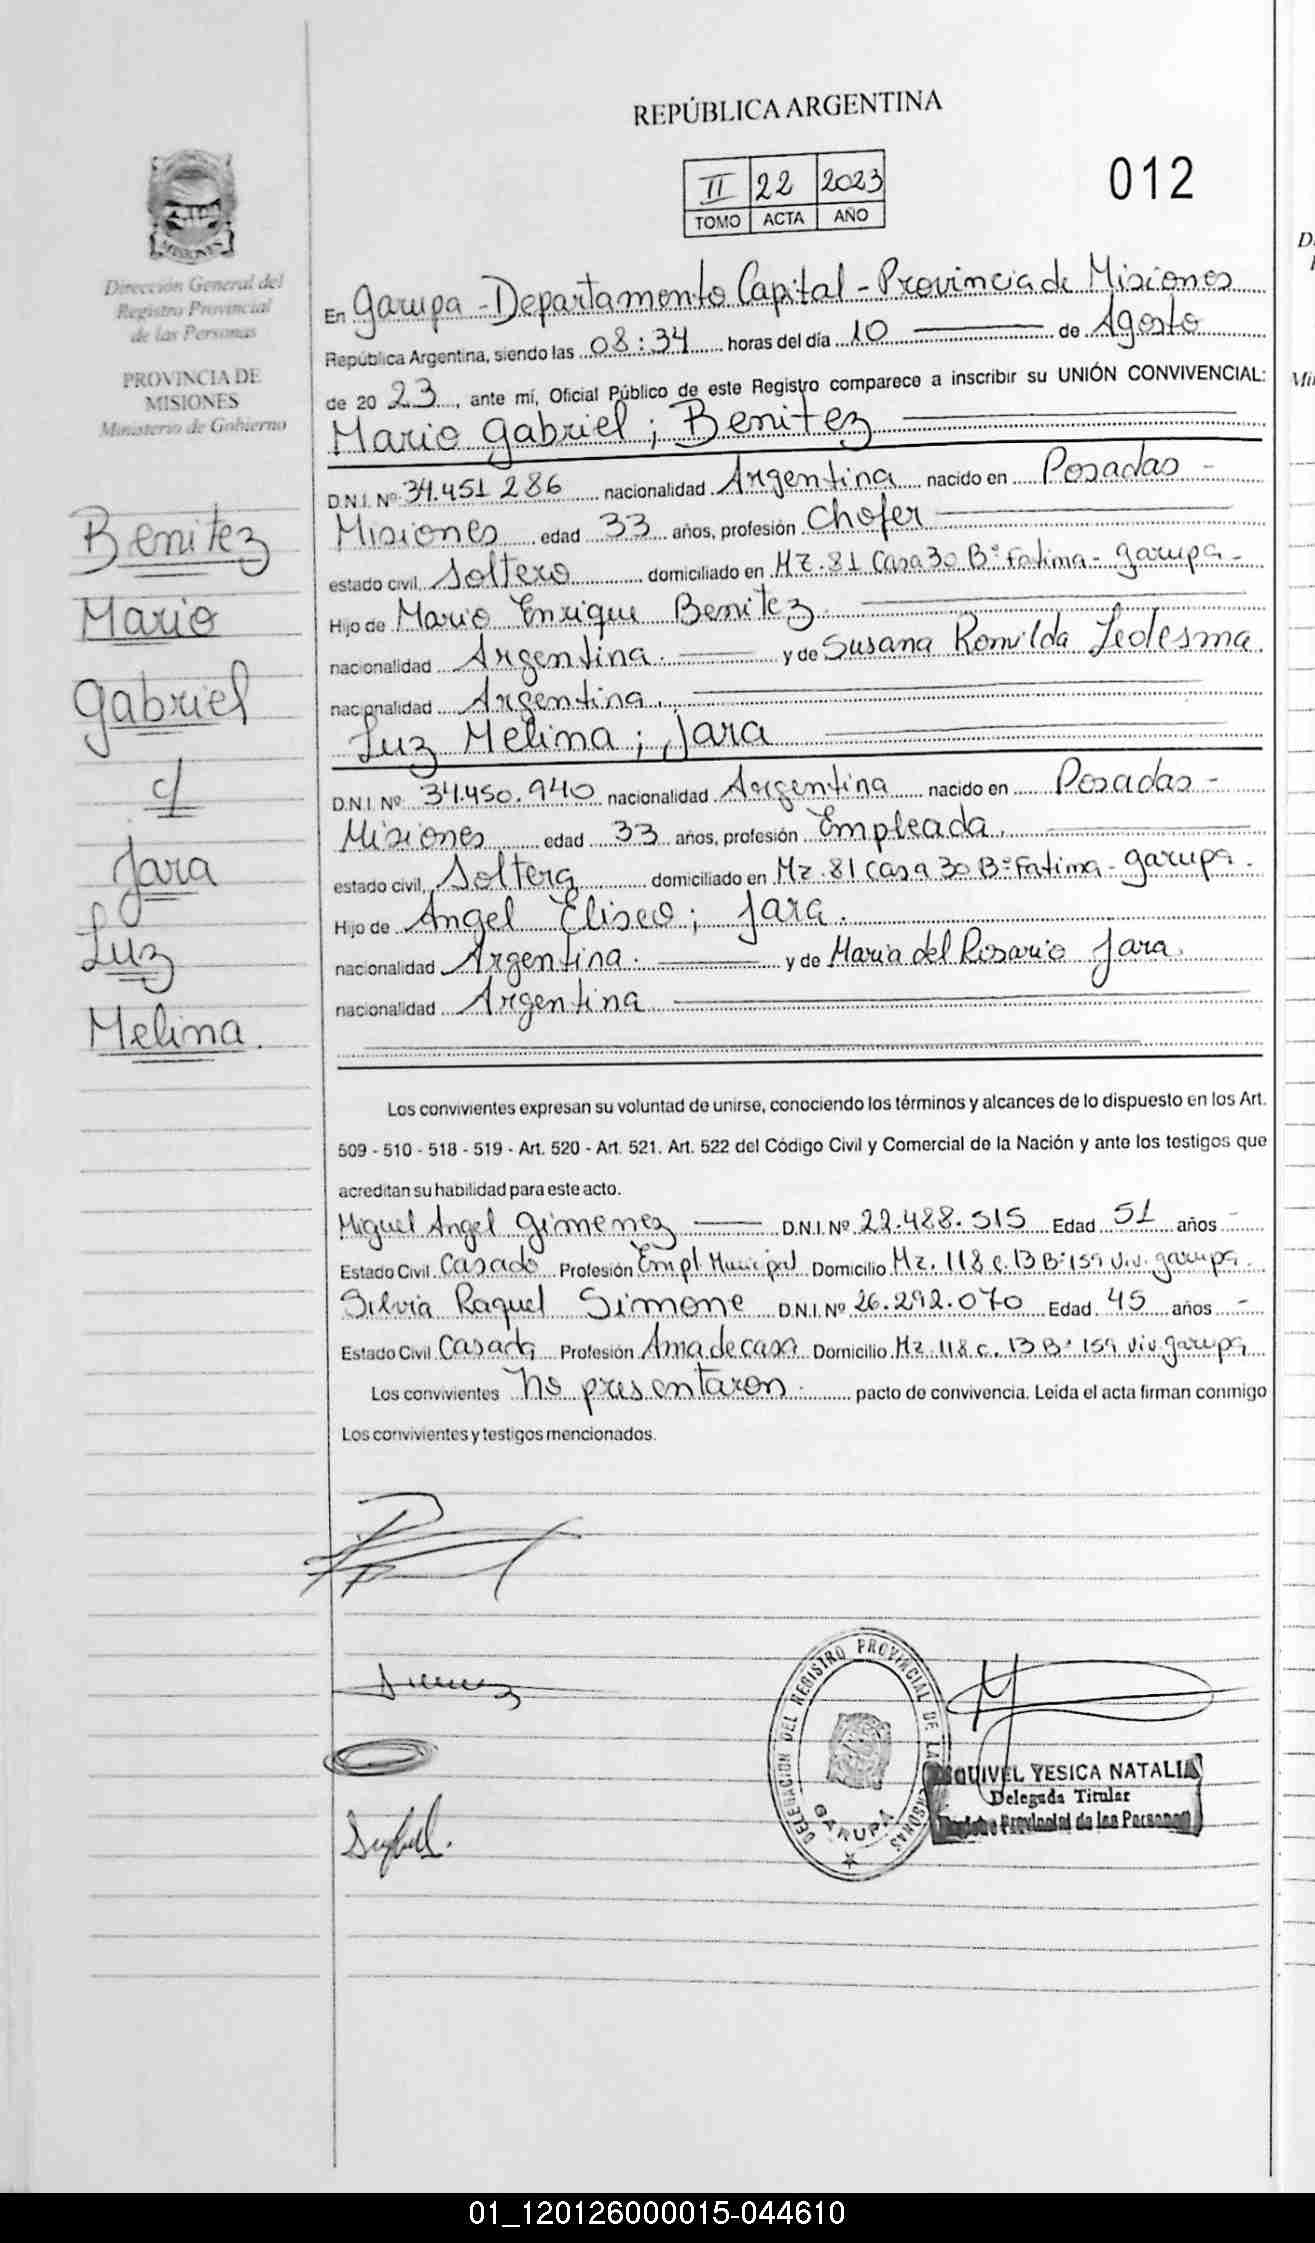 REPÚBLICA ARGENTINA
II 22 2023
TOMO ACTA AÑO
012
MISIONES
Dirección General del
Registro Provincial
de las Personas
PROVINCIA DE
MISIONES
Ministerio de Gobierno
Benitez
Mario
Gabriel
c/
Jara
Luz
Melina.
En Garupa - Departamento Capital - Provincia de Misiones
República Argentina, siendo las 08:34 horas del día 10 de Agosto
de 20 23, ante mí, Oficial Público de este Registro comparece a inscribir su UNIÓN CONVIVENCIAL:
Mario Gabriel; Benitez
D.N.I. Nº 34.451.286 nacionalidad Argentina nacido en Posadas -
Misiones edad 33 años, profesión Chofer
estado civil Soltero domiciliado en Mz. 81 Casa 30 Bº Fatima - Garupa -
Hijo de Mario Enrique Benitez
nacionalidad Argentina. y de Susana Romilda Ledesma.
nacionalidad Argentina.
Luz Melina; Jara
D.N.I. Nº 34.450.940 nacionalidad Argentina nacido en Posadas -
Misiones edad 33 años, profesión Empleada.
estado civil, Soltera domiciliado en Mz. 81 Casa 30 Bº Fatima - Garupa.
Hijo de Angel Eliseo; Jara.
nacionalidad Argentina. y de Maria del Rosario Jara.
nacionalidad Argentina
Los convivientes expresan su voluntad de unirse, conociendo los términos y alcances de lo dispuesto en los Art.
509 - 510 - 518 - 519 - Art. 520 - Art. 521. Art. 522 del Código Civil y Comercial de la Nación y ante los testigos que
acreditan su habilidad para este acto.
Miguel Angel Gimenez D.N.I. Nº 22.488.515 Edad 51 años -
Estado Civil Casado Profesión Empl. Municipal Domicilio Mz. 118 c. 13 Bº 159 Viv. Garupa.
Silvia Raquel Simone D.N.I. Nº 26.292.070 Edad 45 años -
Estado Civil Casada Profesión Ama de casa Domicilio Mz. 118 c. 13 Bº 159 Viv Garupa
Los convivientes no presentaron. pacto de convivencia. Leída el acta firman conmigo
Los convivientes y testigos mencionados.
DELEGACION DEL REGISTRO PROVINCIAL DE LAS PERSONAS
GARUPA
ESQUIVEL YESICA NATALIA
Delegada Titular
Registro Provincial de las Personas
01_120126000015-044610